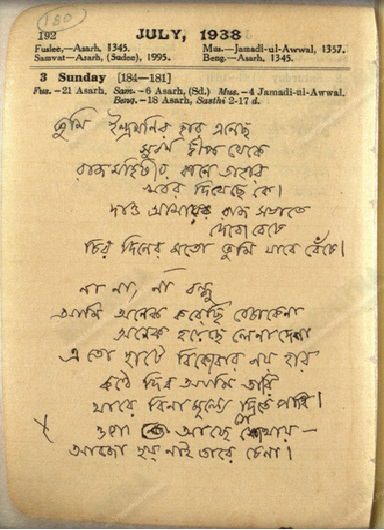 180
192 JULY, 1938
Fuslee,—Asarh, 1345. Mus.—Jamadi-ul-Awwal, 1357.
Samvat—Asarh, (Sudee), 1995. Beng.—Asarh, 1345.
3 Sunday [184—181]
Fus.—21 Asarh, Sam.—6 Asarh, (Sd.) Mus.—4 Jamadi-ul-Awwal,
Beng.—18 Asarh, Sasthi 2-17 d.
তুমি ইন্দ্রমনির হার এনেছ
সুবর্ণ দ্বীপ থেকে
রাজমহিষীর কানে তাহার
খবর দিয়েছে কে।
দাও আমায় রাজ সভাতে
দেবো বেচে
চির দিনের মতো তুমি যাবে বেঁচে।
না না, না বন্ধু
আমি অনেক করেছি বেচাকেনা
অনেক হয়েছে লেনাদেনা
এ তো হাটে বিকোবার নয় হার
কণ্ঠে দিব আমি তারি
যারে বিনা মূল্যে দিতে পারি।
ওগো আছে সে কোথায়—
আজো হয় নাই তারে চেনা।